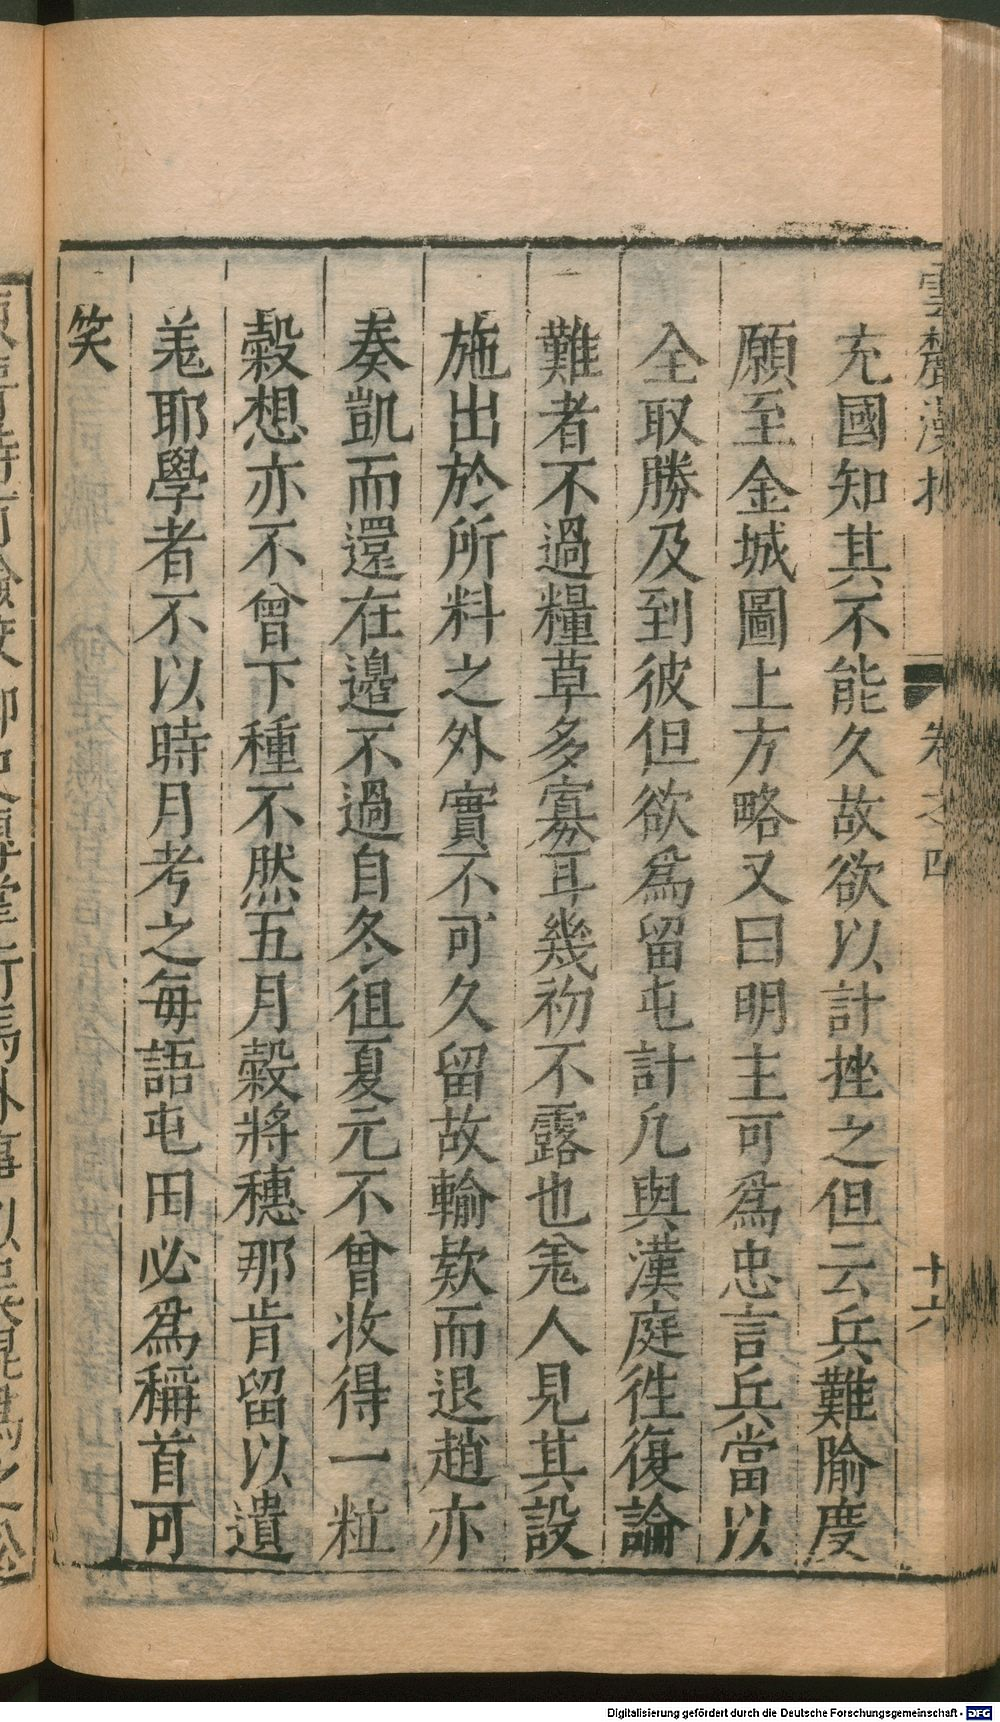 雲麓漫抄
卷之四
十六
充國知其不能久故欲以計挫之但云兵難隃度
願至金城圖上方略又曰明主可爲忠言兵當以
全取勝及到彼但欲爲留屯計凡與漢庭徃復論
難者不過糧草多寡耳幾初不露也羌人見其設
施出於所料之外實不可久留故輸欵而退趙亦
奏凱而還在邊不過自冬徂夏元不曾收得一粒
穀想亦不曾下種不然五月穀將穗那肯留以遺
羌耶學者不以時月考之每語屯田必爲稱首可
笑
Digitalisierung gefördert durch die Deutsche Forschungsgemeinschaft - DFG